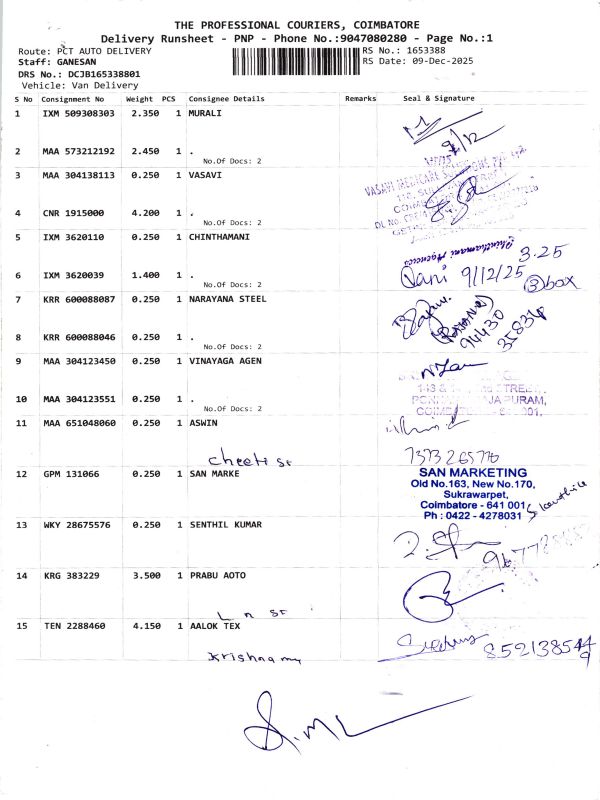 THE PROFESSIONAL COURIERS, COIMBATORE
Delivery Runsheet - PNP - Phone No.:9047080280 - Page No.:1
Route: PCT AUTO DELIVERY
RS No.: 1653388
Staff: GANESAN
RS Date: 09-Dec-2025
DRS No.: DCJB165338801
Vehicle: Van Delivery
S No Consignment No Weight PCS Consignee Details Remarks Seal & Signature
1 IXM 509308303 2.350 1 MURALI
9/12
2 MAA 573212192 2.450 1 .
No.Of Docs: 2
3 MAA 304138113 0.250 1 VASAVI
4 CNR 1915000 4.200 1 .
No.Of Docs: 2
5 IXM 3620110 0.250 1 CHINTHAMANI
3.25
6 IXM 3620039 1.400 1 .
Rani 9/12/25
No.Of Docs: 2
3 box
7 KRR 600088087 0.250 1 NARAYANA STEEL
94430
35834
8 KRR 600088046 0.250 1 .
No.Of Docs: 2
9 MAA 304123450 0.250 1 VINAYAGA AGEN
10 MAA 304123551 0.250 1 .
No.Of Docs: 2
11 MAA 651048060 0.250 1 ASWIN
cheeti st
7373265770
12 GPM 131066 0.250 1 SAN MARKE
SAN MARKETING
Old No.163, New No.170,
Sukrawarpet,
Coimbatore - 641 001
Ph : 0422 - 4278031
13 WKY 28675576 0.250 1 SENTHIL KUMAR
14 KRG 383229 3.500 1 PRABU AOTO
L n st
15 TEN 2288460 4.150 1 AALOK TEX
Krishnamy